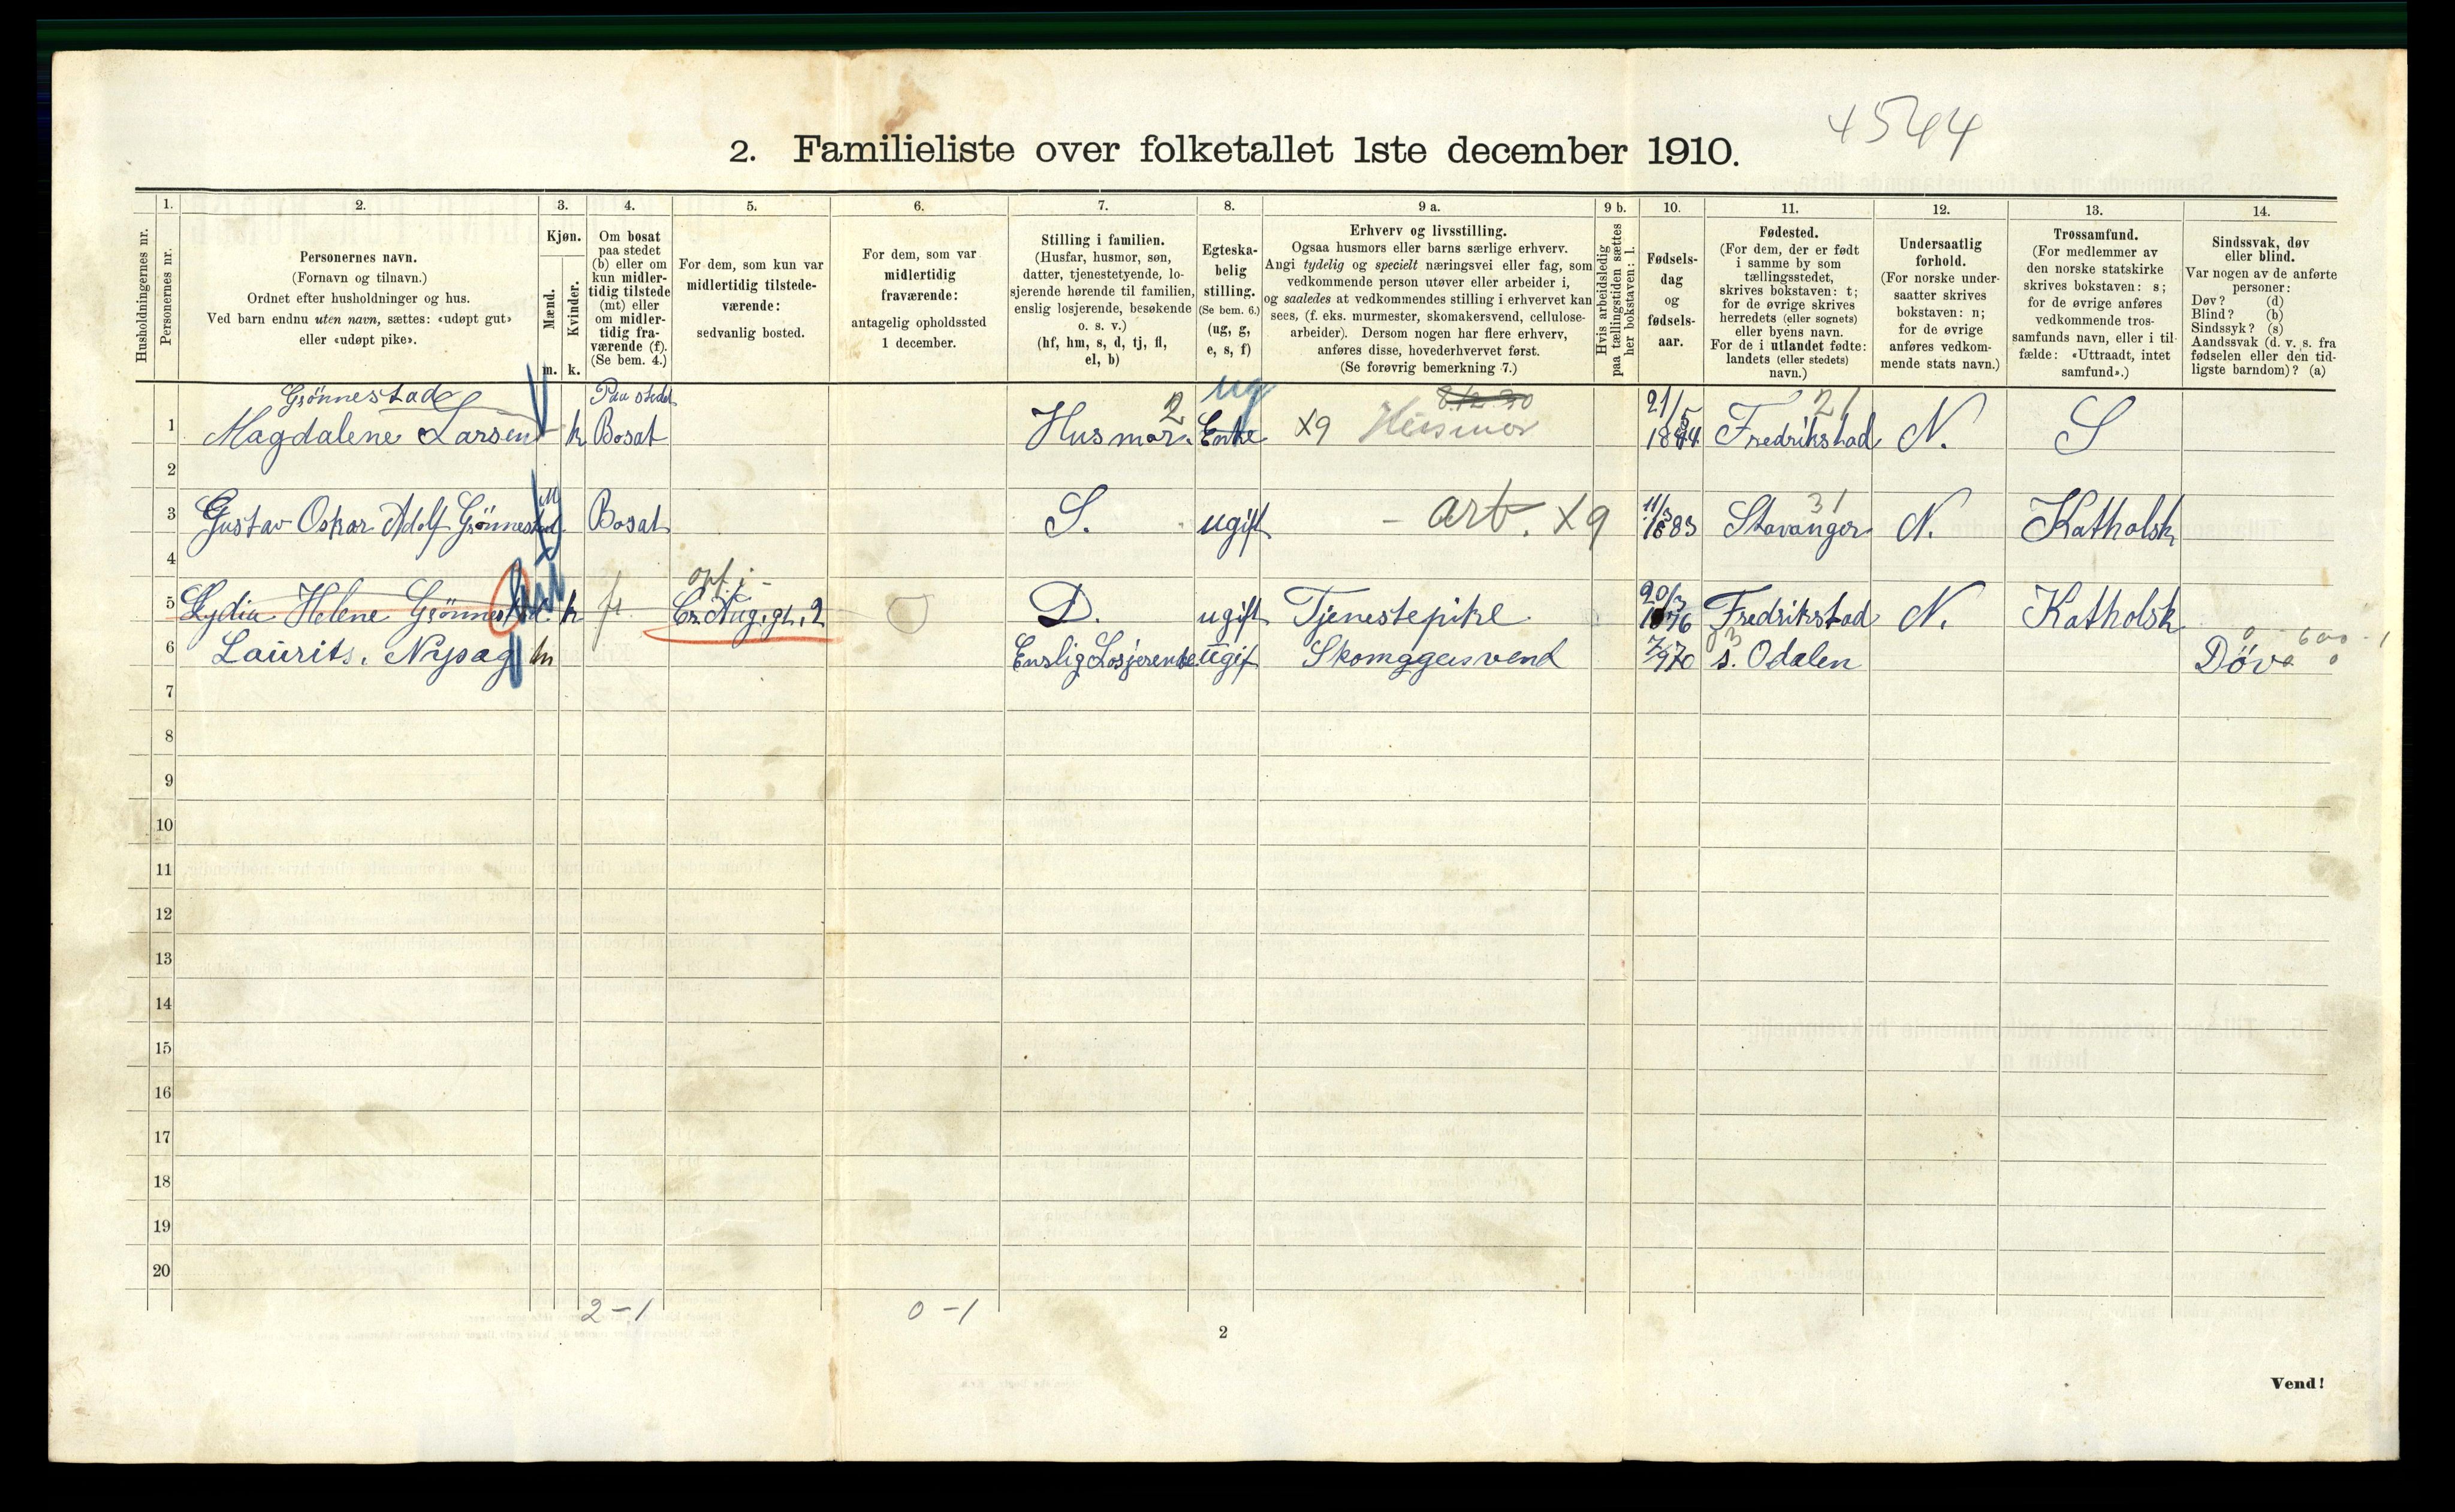 4544
2. Familieliste over folketallet 1ste december 1910.
Husholdningernes nr.
1.
Personernes nr.
2.
Personernes navn.
(Fornavn og tilnavn.)
Ordnet efter husholdninger og hus.
Ved barn endnu uten navn, sættes: «udøpt gut»
eller «udøpt pike».
3.
Kjøn.
Mænd.
Kvinder.
m. k.
4.
Om bosat
paa stedet
(b) eller om
kun midler-
tidig tilstede
(mt) eller
om midler-
tidig fra-
værende (f).
(Se bem. 4.)
5.
For dem, som kun var
midlertidig tilstede-
værende:
sedvanlig bosted.
6.
For dem, som var
midlertidig
fraværende:
antagelig opholdssted
1 december.
7.
Stilling i familien.
(Husfar, husmor, søn,
datter, tjenestetyende, lo-
sjerende hørende til familien,
enslig losjerende, besøkende
o. s. v.)
(hf, hm, s, d, tj, fl,
el, b)
8.
Egteska-
belig
stilling.
(Se bem. 6.)
(ug, g,
e, s, f)
9 a.
Erhverv og livsstilling.
Ogsaa husmors eller barns særlige erhverv.
Angi tydelig og specielt næringsvei eller fag, som
vedkommende person utøver eller arbeider i,
og saaledes at vedkommendes stilling i erhvervet kan
sees, (f. eks. murmester, skomakersvend, cellulose-
arbeider). Dersom nogen har flere erhverv,
anføres disse, hovederhvervet først.
(Se forøvrig bemerkning 7.)
9 b.
Hvis arbeidsledig
paa tællingstiden sættes
her bokstaven: l.
10.
Fødsels-
dag
og
fødsels-
aar.
11.
Fødested.
(For dem, der er født
i samme by som
tællingsstedet,
skrives bokstaven: t;
for de øvrige skrives
herredets (eller sognets)
eller byens navn.
For de i utlandet fødte:
landets (eller stedets)
navn.)
12.
Undersaatlig
forhold.
(For norske under-
saatter skrives
bokstaven: n;
for de øvrige
anføres vedkom-
mende stats navn.)
13.
Trossamfund.
(For medlemmer av
den norske statskirke
skrives bokstaven: s;
for de øvrige anføres
vedkommende tros-
samfunds navn, eller i til-
fælde: «Uttraadt, intet
samfund».)
14.
Sindssvak, døv
eller blind.
Var nogen av de anførte
personer:
Døv? (d)
Blind? (b)
Sindssyk? (s)
Aandssvak (d. v. s. fra
fødselen eller den tid-
ligste barndom)? (a)
Grönnestad Paa stedet 2 ug 21/5 21
1 Magdalene Larsen k Bosat Husmor. Enke X9 Husmor 1844 Fredrikstad N. S
2
3 Gustav Oskar Adolf Grönnestad M Bosat S. ugift - arb. X9 11/3 1883 Stavanger 31 N. Katholsk
4
opt i -
5 Lydia Helene Grönnestad k Cr. Aug. gt. 2 D. ugift Tjenestepike 20/3 1876 Fredrikstad N. Katholsk
6 Laurits. Nysag m Enslig Losjerende Ugif Skomagersvend 7/9 70 s. Odalen Döv
7
8
9
10
11
12
13
14
15
16
17
18
19
20
2-1 0-1
2
Vend!